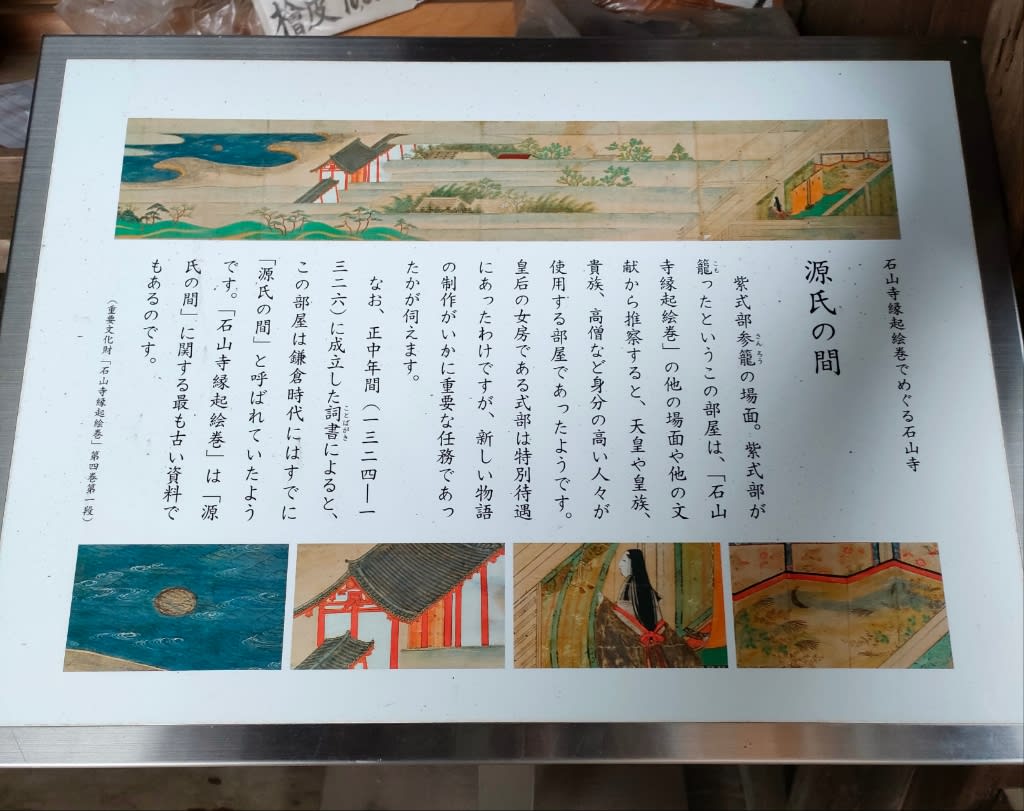 檜皮
石山寺縁起絵巻でめぐる石山寺
源氏の間
紫式部参籠の場面。紫式部が
さんろう
籠ったというこの部屋は、「石山
こも
寺縁起絵巻」の他の場面や他の文
献から推察すると、天皇や皇族、
貴族、高僧など身分の高い人々が
使用する部屋であったようです。
皇后の女房である式部は特別待遇
にあったわけですが、新しい物語
の制作がいかに重要な任務であっ
たかが伺えます。
なお、正中年間(一三二四―一
三二六)に成立した詞書によると、
ことばがき
この部屋は鎌倉時代にはすでに
「源氏の間」と呼ばれていたよう
です。「石山寺縁起絵巻」は「源
氏の間」に関する最も古い資料で
もあるのです。
(重要文化財「石山寺縁起絵巻」第四巻第一段)